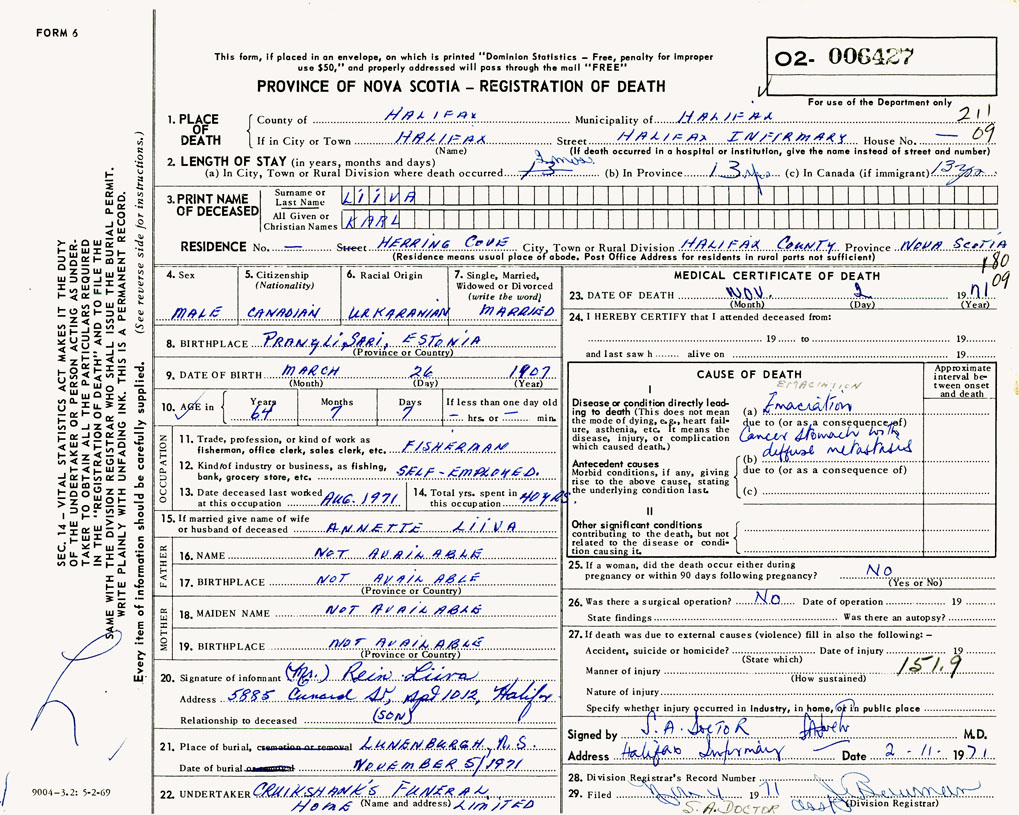 FORM 6
This form, if placed in an envelope, on which is printed "Dominion Statistics – Free, penalty for improper
use $50," and properly addressed will pass through the mail "FREE"
O2- 006427
For use of the Department only
PROVINCE OF NOVA SCOTIA – REGISTRATION OF DEATH
211
09
1. PLACE OF DEATH
County of HALIFAX Municipality of HALIFAX
If in City or Town HALIFAX Street HALIFAX INFIRMARY House No. —
(Name) (If death occurred in a hospital or institution, give the name instead of street and number)
2. LENGTH OF STAY (in years, months and days)
(a) In City, Town or Rural Division where death occurred 13 2 mos (b) In Province 13 yrs (c) In Canada (if immigrant) 13 yrs
3. PRINT NAME OF DECEASED
Surname or Last Name LIIVA
All Given or Christian Names KARL
RESIDENCE No. — Street HERRING COVE City, Town or Rural Division HALIFAX COUNTY Province NOVA SCOTIA
(Residence means usual place of abode. Post Office Address for residents in rural parts not sufficient)
180
09
4. Sex
MALE
5. Citizenship
(Nationality)
CANADIAN
6. Racial Origin
UKRANIAN
7. Single, Married,
Widowed or Divorced
(write the word)
MARRIED
8. BIRTHPLACE PRANGLI SARI, ESTONIA
(Province or Country)
9. DATE OF BIRTH MARCH 26 1907
(Month) (Day) (Year)
10. AGE in
Years Months Days If less than one day old
64 7 7 — hrs. or — min.
OCCUPATION
11. Trade, profession, or kind of work as
fisherman, office clerk, sales clerk, etc. FISHERMAN
12. Kind of industry or business, as fishing,
bank, grocery store, etc. SELF-EMPLOYED.
13. Date deceased last worked
at this occupation AUG. 1971
14. Total yrs. spent in
this occupation 40 YRS.
15. If married give name of wife
or husband of deceased ANNETTE LIIVA
FATHER
16. NAME NOT AVAILABLE
17. BIRTHPLACE NOT AVAILABLE
(Province or Country)
MOTHER
18. MAIDEN NAME NOT AVAILABLE
19. BIRTHPLACE NOT AVAILABLE
(Province or Country)
20. Signature of informant (Mr.) Rein Liiva
Address 5885 Cunard St, Apt 1012, Halifax
Relationship to deceased (SON)
21. Place of burial, cremation or removal LUNENBURGH, N.S.
Date of burial NOVEMBER 5/1971
22. UNDERTAKER CRUIKSHANK'S FUNERAL
HOME (Name and address) LIMITED
MEDICAL CERTIFICATE OF DEATH
23. DATE OF DEATH NOV. 2 1971
(Month) (Day) (Year)
24. I HEREBY CERTIFY that I attended deceased from:
19 to 19
and last saw h alive on 19
CAUSE OF DEATH
Approximate
interval be-
tween onset
and death
EMACIATION
I
Disease or condition directly lead-
ing to death (This does not mean
the mode of dying, e.g., heart fail-
ure, asthenia, etc. It means the
disease, injury, or complication
which caused death.)
(a) Emaciation
due to (or as a consequence of)
Cancer Stomach with
(b) diffuse metastasis
due to (or as a consequence of)
(c)
Antecedent causes
Morbid conditions, if any, giving
rise to the above cause, stating
the underlying condition last.
II
Other significant conditions
contributing to the death, but not
related to the disease or condi-
tion causing it.
25. If a woman, did the death occur either during
pregnancy or within 90 days following pregnancy? NO
(Yes or No)
26. Was there a surgical operation? NO Date of operation 19
State findings Was there an autopsy?
27. If death was due to external causes (violence) fill in also the following: –
Accident, suicide or homicide? Date of injury 19
(State which)
Manner of injury 151.9
(How sustained)
Nature of injury
Specify whether injury occurred in industry, in home, or in public place
Signed by S.A. DOCTOR M.D.
Address Halifax Infirmary Date 2 - 11 - 1971
28. Division Registrar's Record Number
29. Filed Nov 4 1971
(Division Registrar)
S.A. DOCTOR
SEC. 14 – VITAL STATISTICS ACT MAKES IT THE DUTY
OF THE UNDERTAKER OR PERSON ACTING AS UNDER-
TAKER TO OBTAIN ALL THE PARTICULARS REQUIRED
IN THE "REGISTRATION OF DEATH" AND TO FILE THE
SAME WITH THE DIVISION REGISTRAR WHO SHALL ISSUE THE BURIAL PERMIT.
WRITE PLAINLY WITH UNFADING INK. THIS IS A PERMANENT RECORD.
Every item of information should be carefully supplied. (See reverse side for instructions.)
9004-3.2: 5-2-69